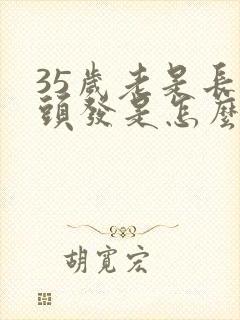 35歲老是長
頭發是怎麼
胡寬宏